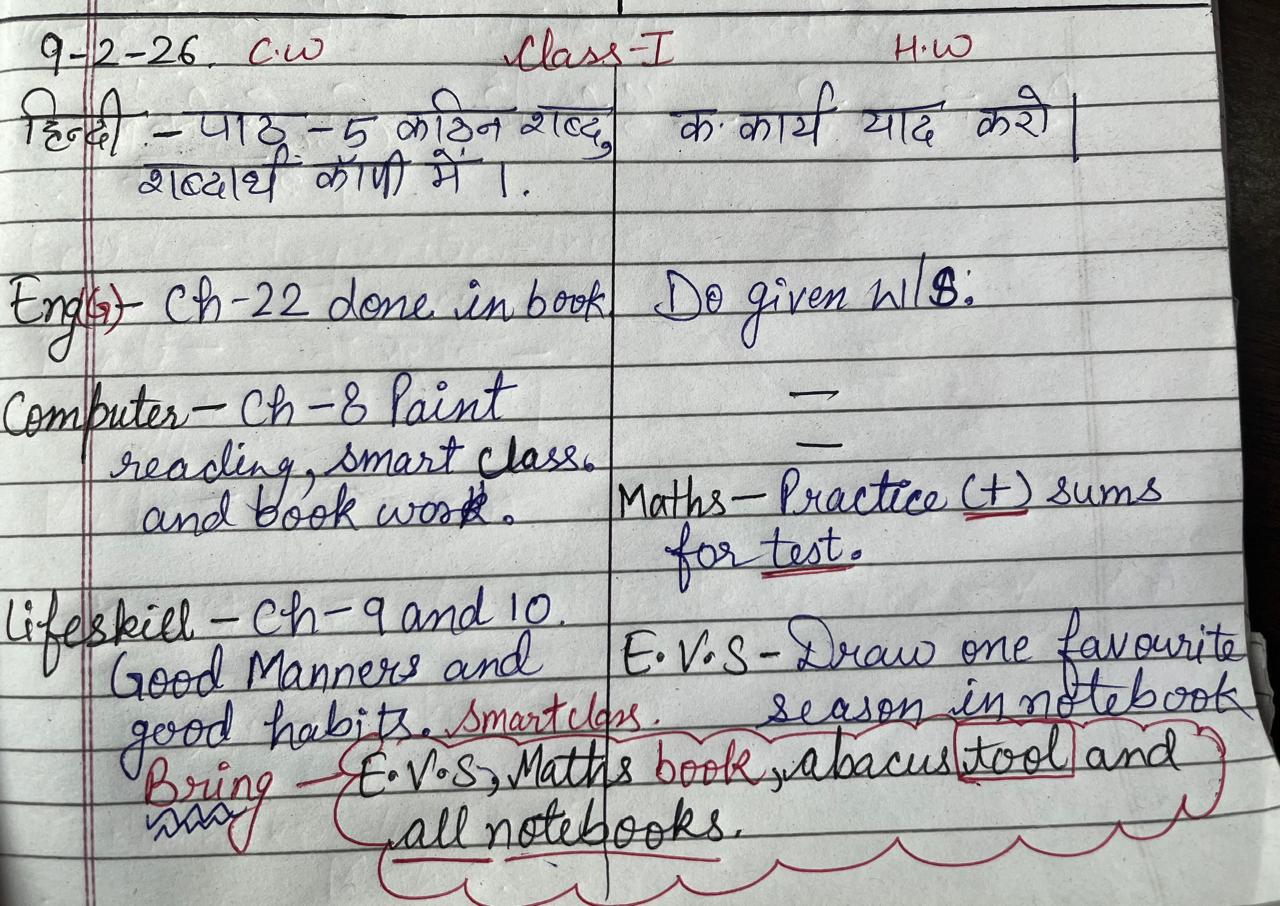 9-2-26. C.W Class-I H.W
हिन्दी - पाठ - 5 कठिन शब्द, क. कार्य याद करो |
शब्दार्थ कॉपी में |.
Eng(G)- Ch-22 done in book Do given W/S.
Computer - Ch-8 Paint —
reading, smart class. —
and book work. Maths - Practice (+) sums
for test.
Lifeskill - Ch-9 and 10. E.V.S - Draw one favourite
Good Manners and season in notebook
good habits. Smart class.
Bring - E.V.S, Maths book, abacus tool and
all notebooks.